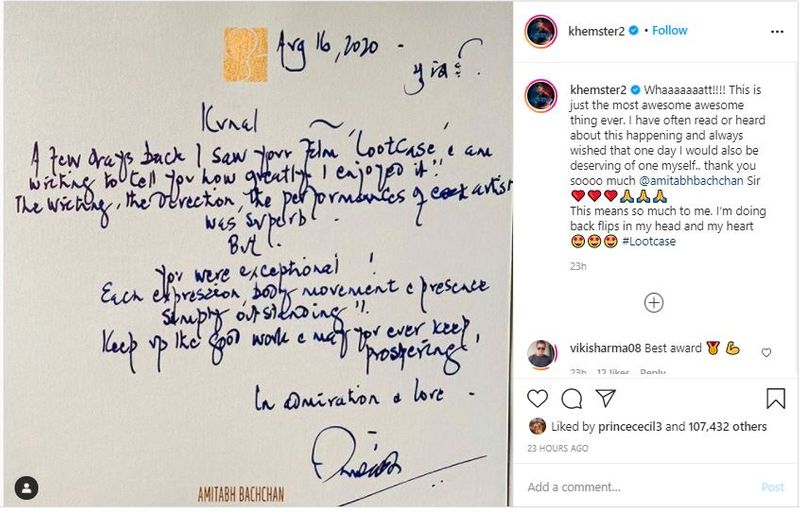 Aug 16, 2020
Kunal
A few days back I saw your film 'Lootcase' & am
writing to tell you how greatly I enjoyed it !!
The Writing, the Direction, the performances of each artist
was superb !
But .
You were exceptional !
Each expression, body movement & presence
simply outstanding !!
Keep up the good work & may you ever keep
prospering !
In admiration & love -
AMITABH BACHCHAN
khemster2 • Follow
khemster2 Whaaaaaaatt!!!! This is
just the most awesome awesome
thing ever. I have often read or heard
about this happening and always
wished that one day I would also be
deserving of one myself.. thank you
soooo much @amitabhbachchan Sir
❤️❤️❤️🙏🙏🙏
This means so much to me. I'm doing
back flips in my head and my heart
🤩🤩🤩 #Lootcase
23h
vikisharma08 Best award 🏅 💪
23h 12 likes Reply
Liked by princececil3 and 107,432 others
23 HOURS AGO
Add a comment...
Post